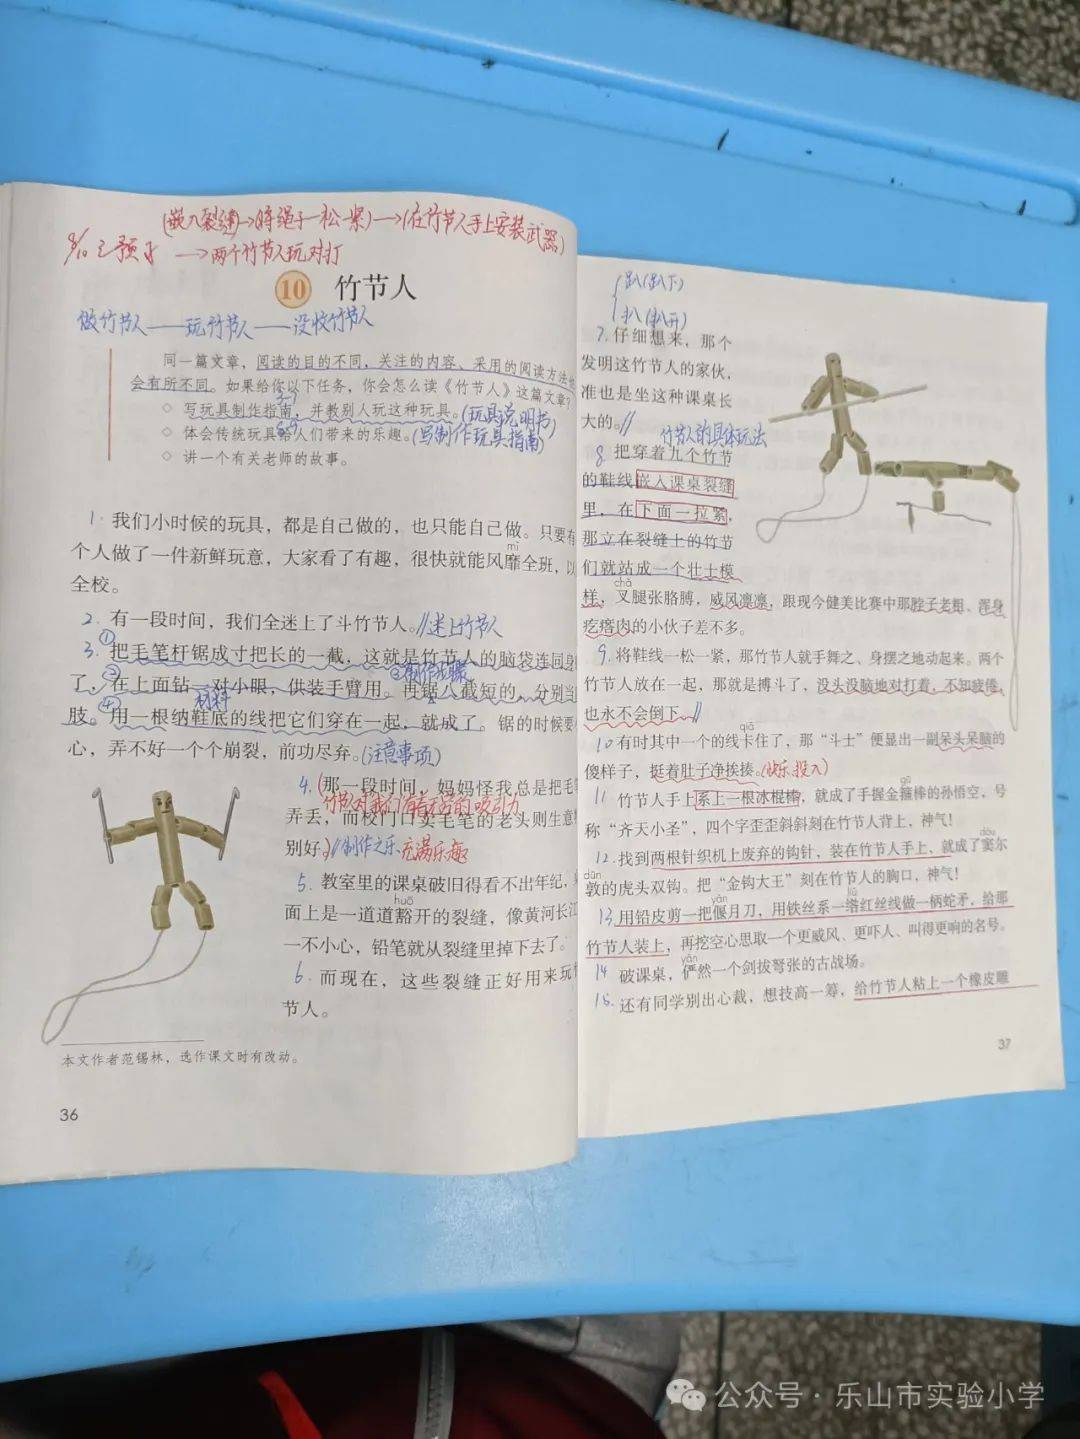 (嵌入裂缝)→(将绳子一松一紧)→(在竹节人手上安装武器)
→两个竹节人玩对打
10 竹节人
做竹节人——玩竹节人——没收竹节人
同一篇文章，阅读的目的不同，关注的内容、采用的阅读方法
会有所不同。如果给你以下任务，你会怎么读《竹节人》这篇文章？
3-7
◇ 写玩具制作指南，并教别人玩这种玩具。(玩具说明书)
◇ 体会传统玩具给人们带来的乐趣。(写制作玩具指南)
◇ 讲一个有关老师的故事。
1. 我们小时候的玩具，都是自己做的，也只能自己做。只要有
mǐ
个人做了一件新鲜玩意，大家看了有趣，很快就能风靡全班，以
全校。
2. 有一段时间，我们全迷上了斗竹节人。//迷上竹节人
3. ①把毛笔杆锯成寸把长的一截，这就是竹节人的脑袋连同身
制作步骤
了，②在上面钻一对小眼，供装手臂用。③再锯八截短的，分别当
材料
肢。④用一根纳鞋底的线把它们穿在一起，就成了。锯的时候要
心，弄不好一个个崩裂，前功尽弃。(注意事项)
4. (那一段时间，妈妈怪我总是把毛
竹节人对我们有着无穷的吸引力
弄丢，而校门口卖毛笔的老头则生意
别好。)//制作之乐 充满乐趣
5. 教室里的课桌破旧得看不出年纪，
huō
面上是一道道豁开的裂缝，像黄河长江
一不小心，铅笔就从裂缝里掉下去了。
6. 而现在，这些裂缝正好用来玩
节人。
本文作者范锡林，选作课文时有改动。
36
趴(趴下)
扒(扒开)
7. 仔细想来，那个
发明这竹节人的家伙，
准也是坐这种课桌长
大的。//
竹节人的具体玩法
8. 把穿着九个竹节
的鞋线嵌入课桌裂缝
里，在下面一拉紧，
那立在裂缝上的竹节
们就站成一个壮士模
chǎ
样，叉腿张胳膊，威风凛凛，跟现今健美比赛中那脖子老粗、浑身
疙瘩肉的小伙子差不多。
9. 将鞋线一松一紧，那竹节人就手舞之、身摆之地动起来。两个
竹节人放在一起，那就是搏斗了，没头没脑地对打着，不知疲倦，
也永不会倒下。//
qiǎ
10 有时其中一个的线卡住了，那“斗士”便显出一副呆头呆脑的
傻样子，挺着肚子净挨揍。(快乐、投入)
gū
11 竹节人手上系上一根冰棍棒，就成了手握金箍棒的孙悟空，号
称“齐天小圣”，四个字歪歪斜斜刻在竹节人背上，神气！
dòu
12. 找到两根针织机上废弃的钩针，装在竹节人手上，就成了窦尔
dūn
敦的虎头双钩。把“金钩大王”刻在竹节人的胸口，神气！
yǎn liǔ
13. 用铅皮剪一把偃月刀，用铁丝系一绺红丝线做一柄蛇矛，给那
竹节人装上，再挖空心思取一个更威风、更吓人、叫得更响的名号。
yǎn
14 破课桌，俨然一个剑拔弩张的古战场。
15. 还有同学别出心裁，想技高一筹，给竹节人粘上一个橡皮雕
37
公众号·乐山市实验小学